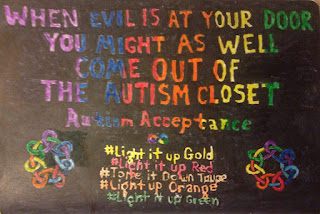 WHEN EVIL IS AT YOUR DOOR
YOU MIGHT AS WELL
COME OUT OF
THE AUTISM CLOSET
Autism Acceptance
#Light it up Gold
#Light it up Red
#Tone it Down Taupe
#Light up Orange
#Light it up Green